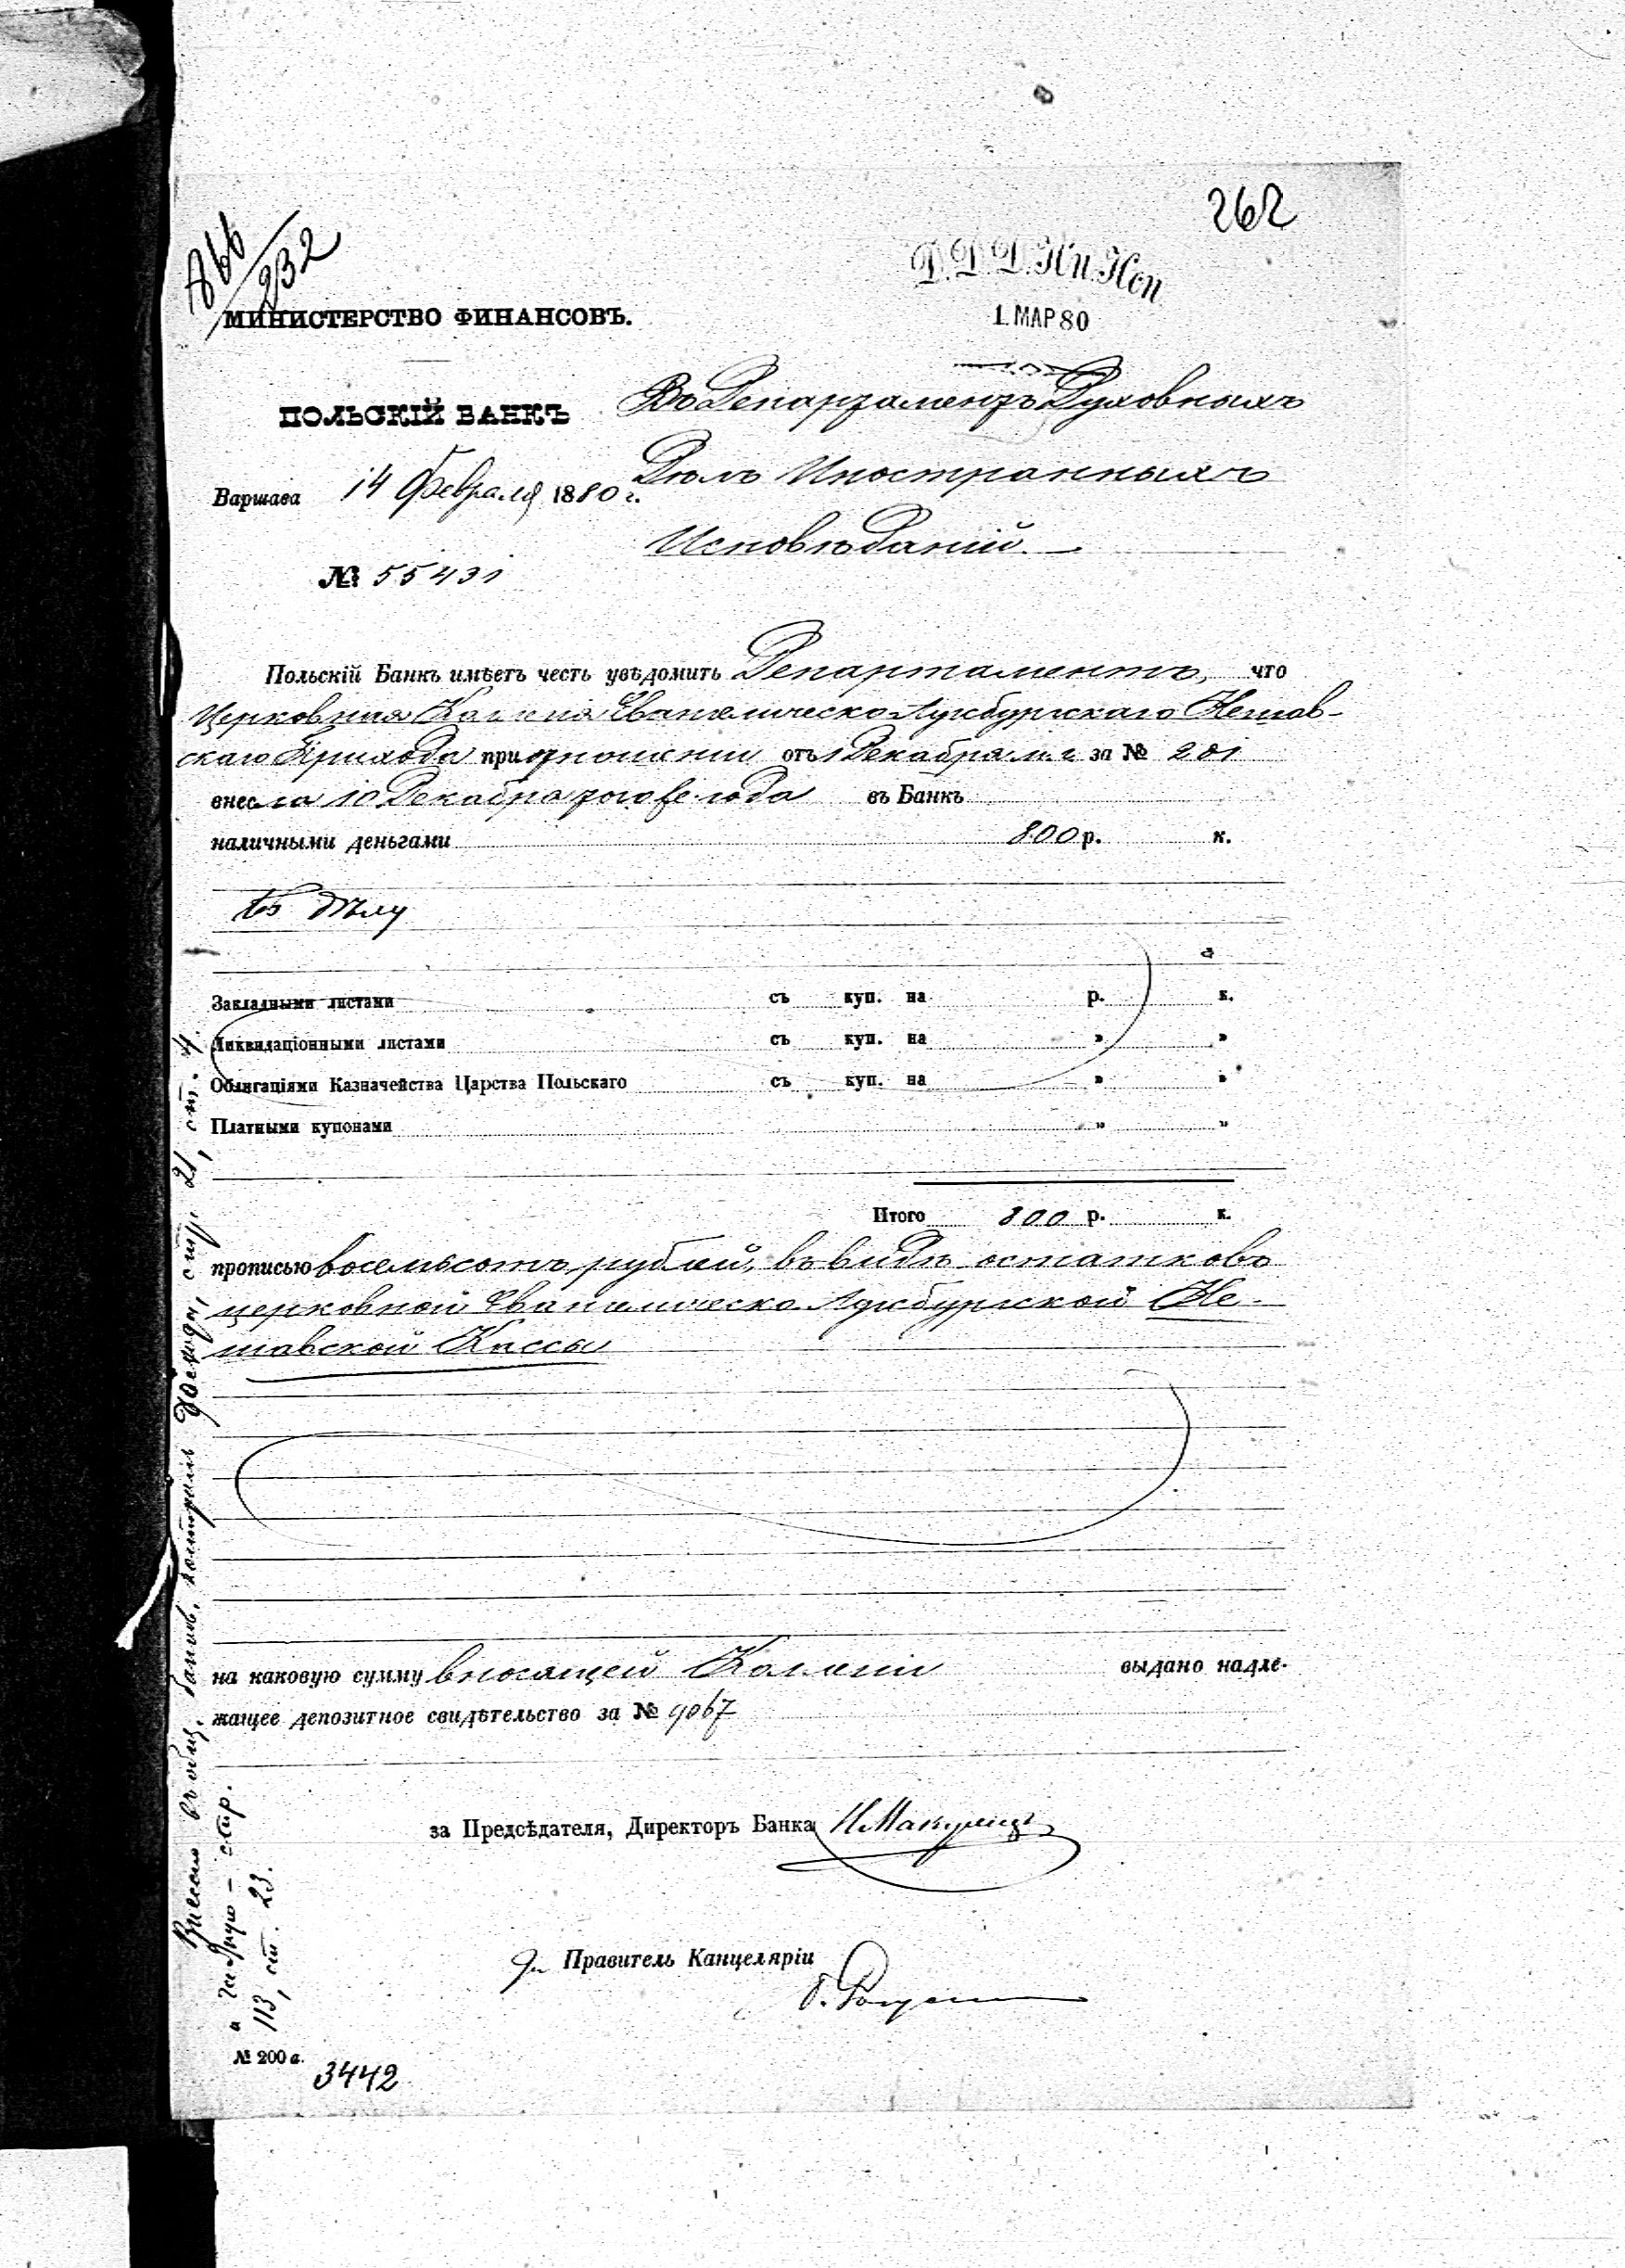 262
866/232
Д. Д. Д. Ин. Исп
1. МАР 80
МИНИСТЕРСТВО ФИНАНСОВЪ.
ПОЛЬСКІЙ БАНКЪ
Въ Департаментъ Духовныхъ
Дѣлъ Иностранныхъ
Исповѣданій.
Варшава 14 Февраля 1880 г.
№ 55431
Польскій Банкъ имѣетъ честь увѣдомить Департаментъ, что
Церковная Евангелическо Аугсбургскаго Нешав-
скаго Прихода при отношеніи отъ 1 Декабря м. г. за № 201
внесла 10 Декабря того же года въ Банкъ
наличными деньгами 800 р. к.
Къ дѣлу
Закладными листами съ куп. на р. к.
Ликвидаціонными листами съ куп. на " "
Облигаціями Казначейства Царства Польскаго съ куп. на " "
Платными купонами " "
Итого 800 р. к.
прописью восемьсотъ рублей, въ видѣ остатковъ
церковной Евангелическо Аугсбургской Не-
шавской Кассы
на каковую сумму вносящей выдано надле-
жащее депозитное свидѣтельство за № 9067
за Предсѣдателя, Директоръ Банка
За Правитель Канцеляріи
Внесено въ общ. банков. контроль стр. 21, ст. 4.
и стр.
113, ст. 23.
№ 200 а.
3442